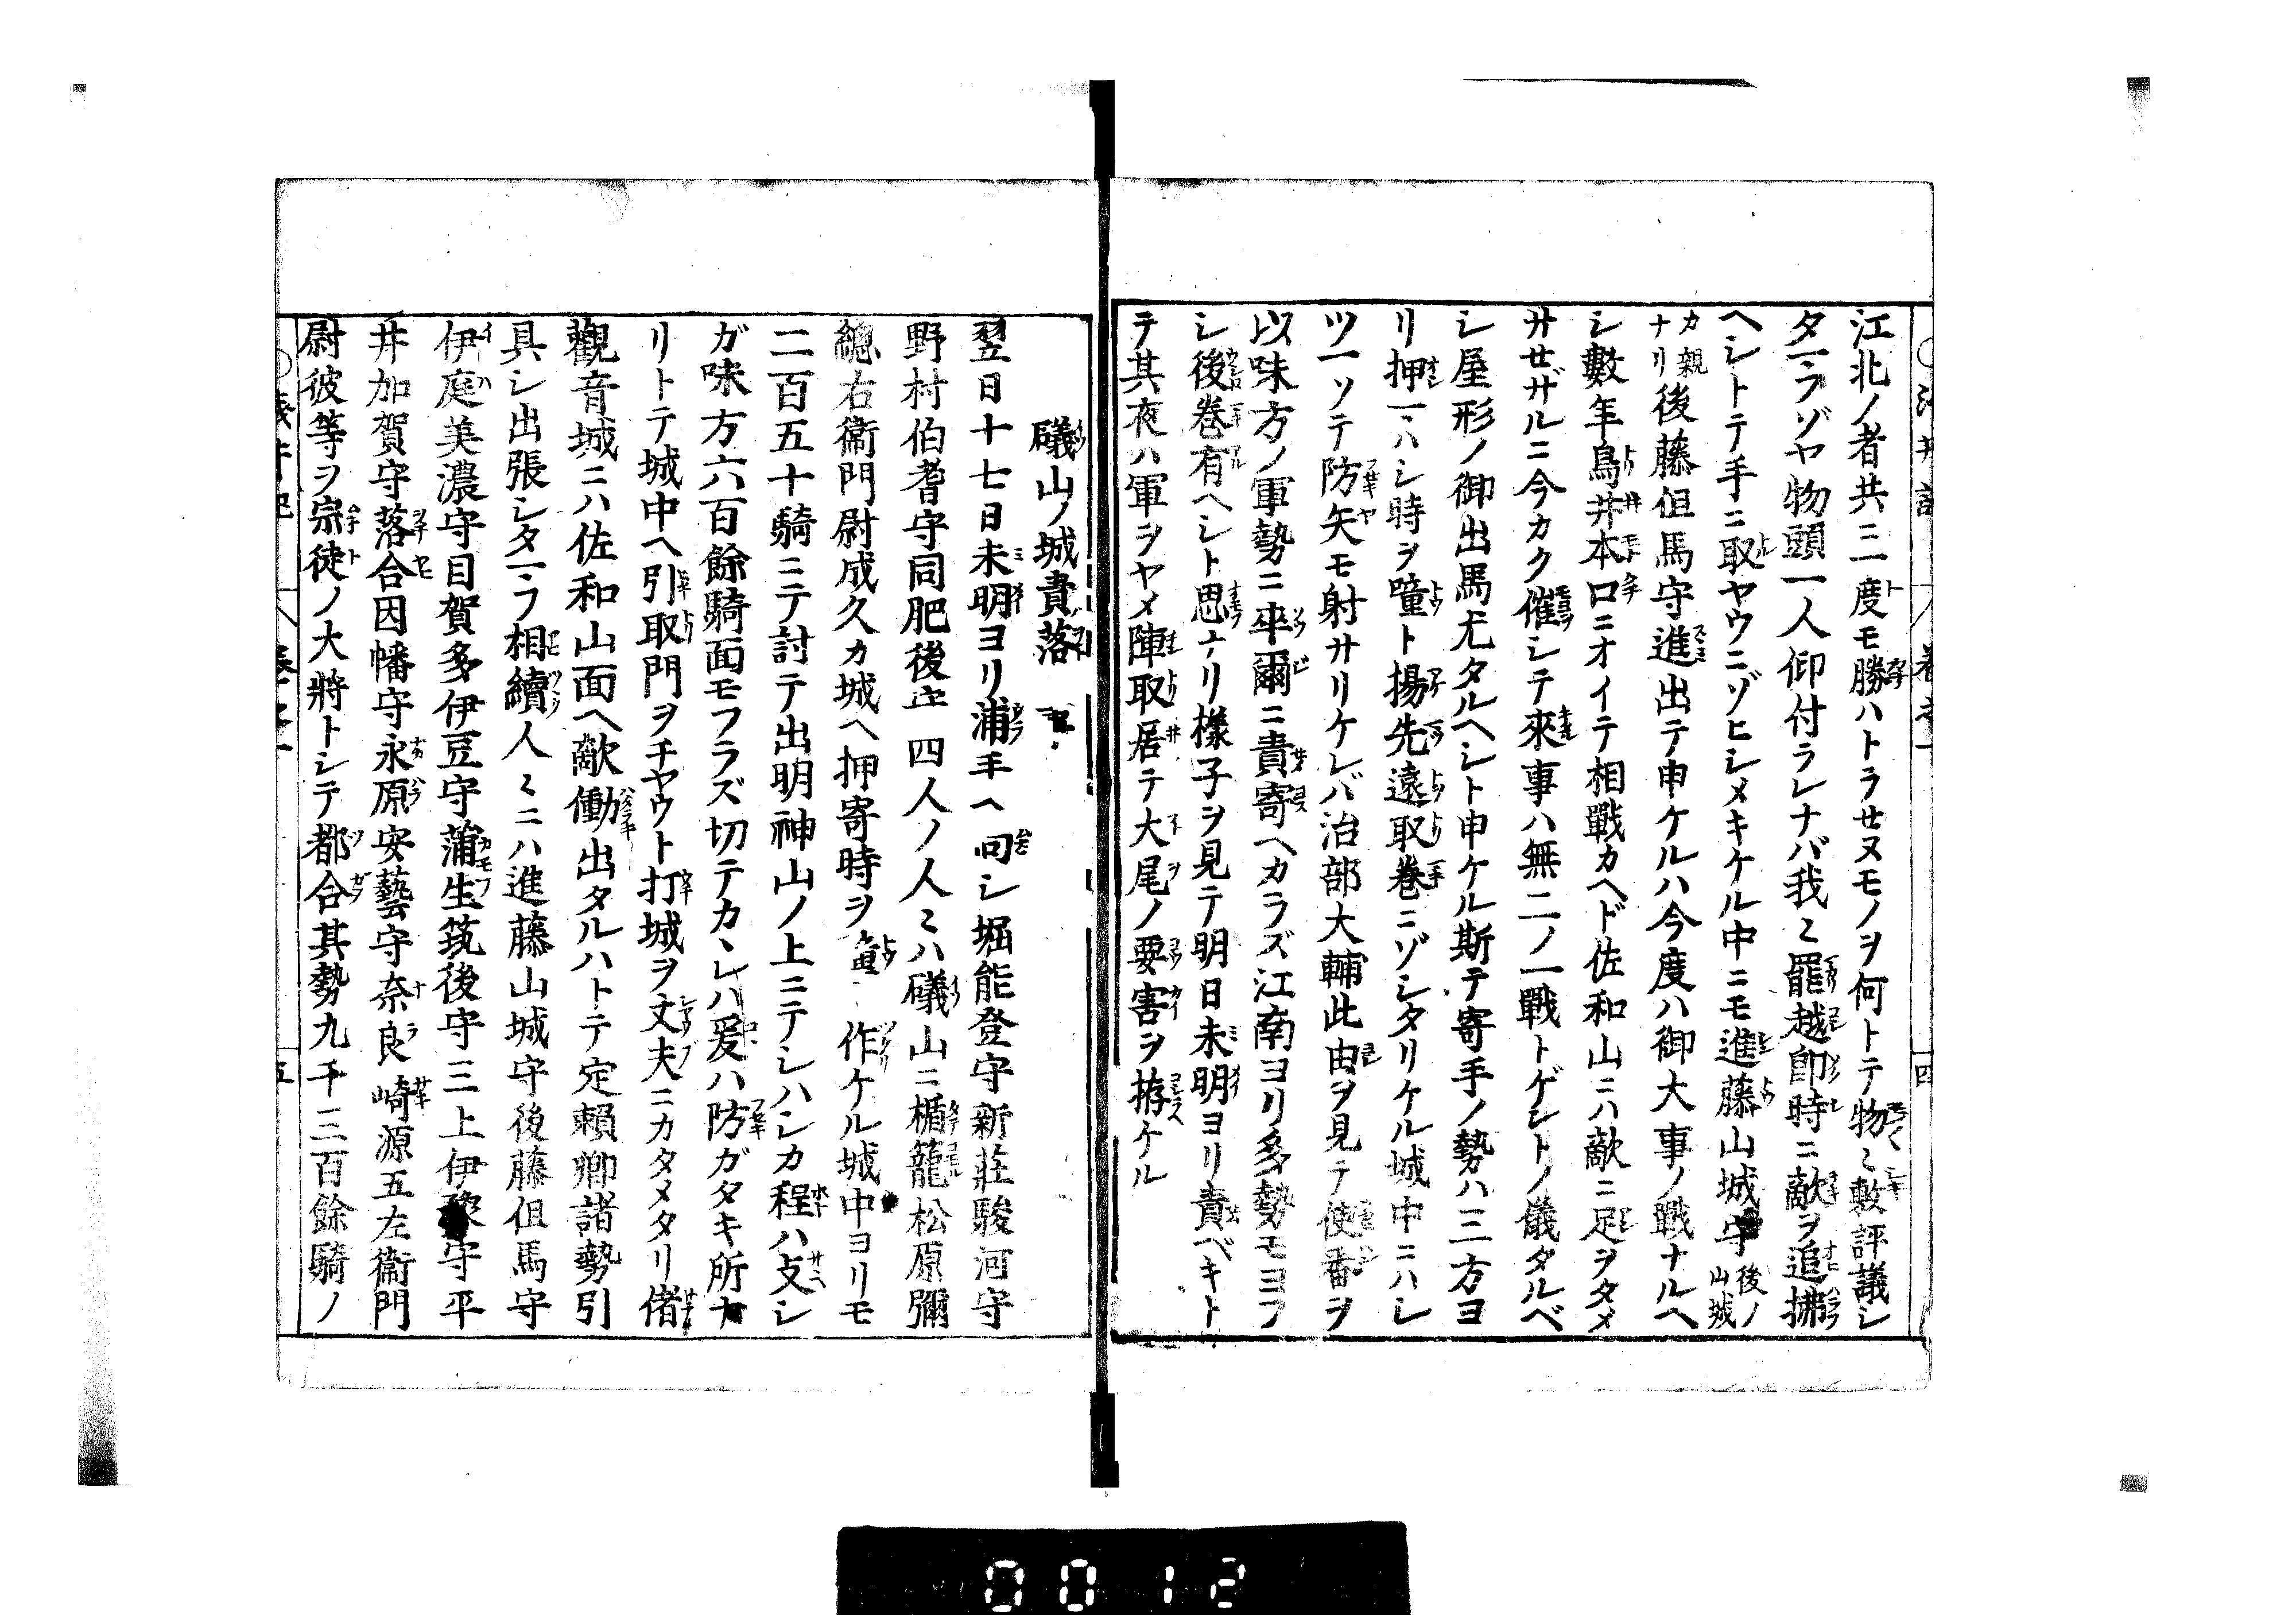 江北ノ者共ニ一度モ勝ハトラセヌモノヲ何トテ物〻敷評議シ
タマフゾヤ物頭一人仰付ラレナバ我〻罷越卽時ニ敵ヲ追拂
ヘシトテ手ニ取ヤウニゾヒシメキケル中ニモ進藤山城守後ノ山城
カ親ナリ後藤但馬守進出テ申ケルハ今度ハ御大事ノ戰ナルヘ
シ數年鳥井本口ニオイテ相戰カヘド佐和山ニハ敵ニ足ヲタメ
サセザルニ今カク催シテ來事ハ無二ノ一戰トゲントノ儀タルベ
シ屋形ノ御出馬尤タルヘシト申ケル斯テ寄手ノ勢ハ三方ヨ
リ押マハシ時ヲ噇ト揚先遠取巻ニゾシタリケル城中ニハシ
ツマツテ防矢モ射サリケレバ治部大輔此由ヲ見テ使番ヲ
以味方ノ軍勢ニ卒爾ニ責寄ヘカラズ江南ヨリ多勢モヨフ
シ後巻有ヘシト思ナリ樣子ヲ見テ明日未明ヨリ責ベキト
テ其夜ハ軍ヲヤメ陣取居テ大尾ノ要害ヲ拵ケル
礒山ノ城責落ヿ
翌日十七日未明ヨリ浦手ヘ向シ堀能登守新莊駿河守
野村伯耆守同肥後守四人ノ人〻ハ礒山ニ楯籠松原彌
總右衞門尉成久カ城ヘ押寄時ヲ作ケル城中ヨリモ
二百五十騎ニテ討テ出明神山ノ上ニテシハシカ程ハ攴シ
ガ味方六百餘騎面モフラズ切テカヽレハ爰ハ防ガタキ所ナ
リトテ城中ヘ引取門ヲチヤウト打城ヲ丈夫ニカタメタリ偖
觀音城ニハ佐和山面ヘ敵働出タルハトテ定賴卿諸勢引
具シ出張シタマフ相續人〻ニハ進藤山城守後藤但馬守
伊庭美濃守目賀多伊豆守蒲生筑後守三上伊豫守平
井加賀守落合因幡守永原安藝守奈良崎源五左衞門
尉彼等ヲ宗徒ノ大將トシテ都合其勢九千三百餘騎ノ
0012